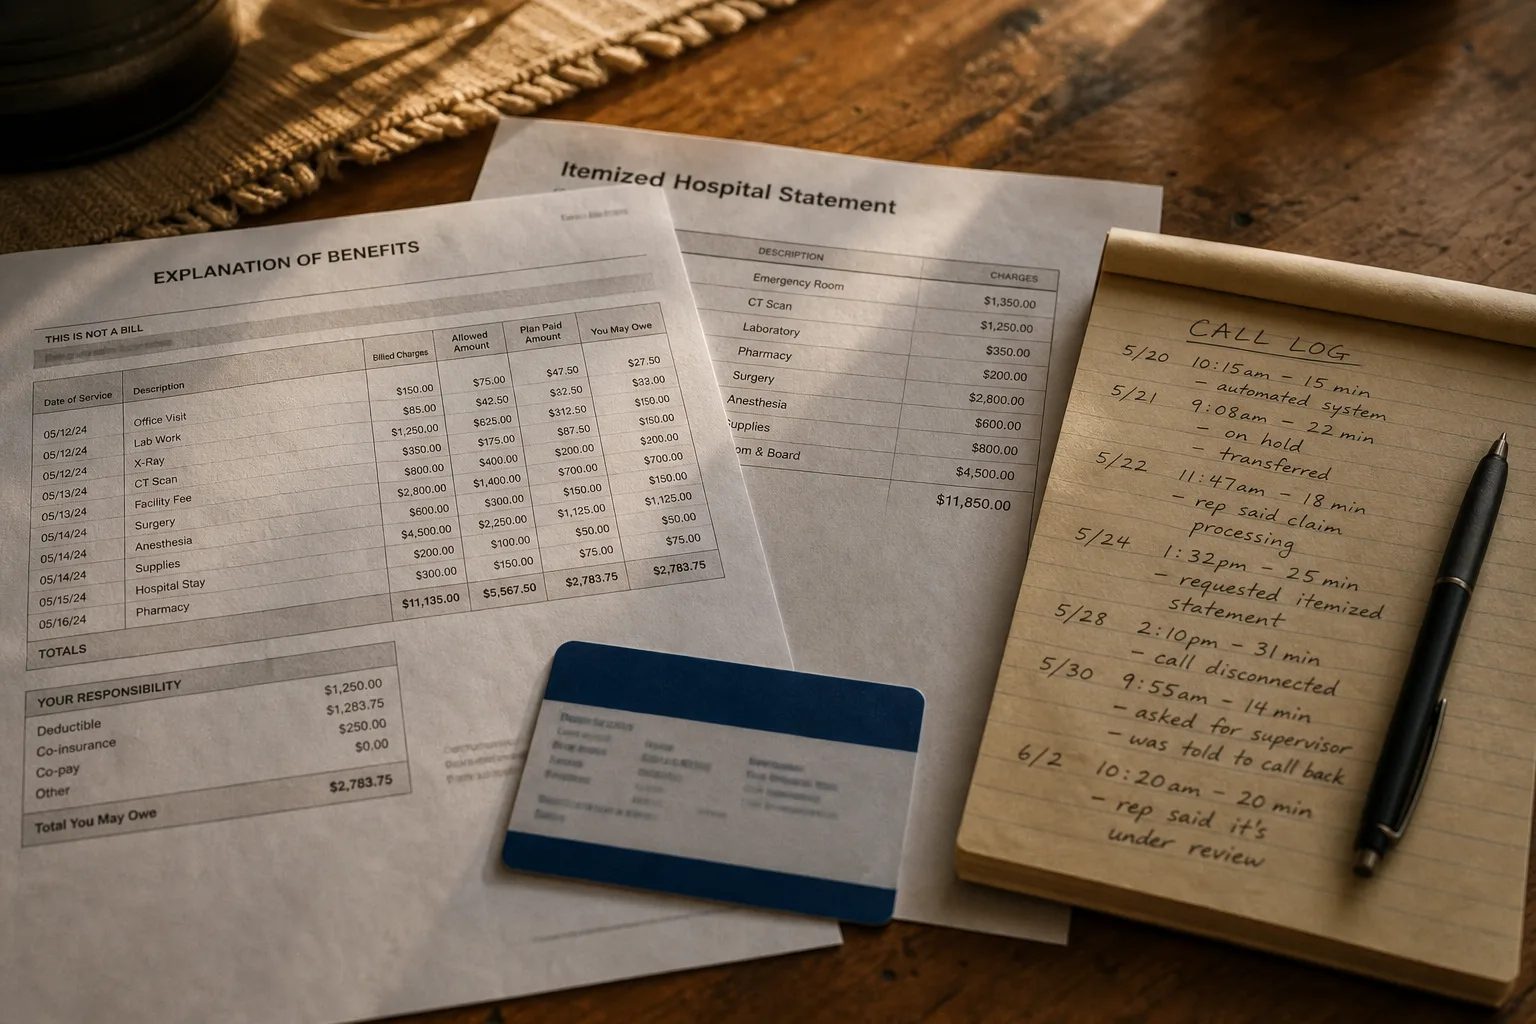 EXPLANATION OF BENEFITS
THIS IS NOT A BILL
Date of Service Description Billed Charges Allowed Amount Plan Paid Amount You May Owe
05/12/24 Office Visit $150.00 $75.00 $47.50 $27.50
05/12/24 Lab Work $85.00 $42.50 $32.50 $33.00
05/12/24 X-Ray $1,250.00 $625.00 $312.50 $150.00
05/13/24 CT Scan $350.00 $175.00 $87.50 $150.00
05/13/24 Facility Fee $800.00 $400.00 $200.00 $200.00
05/14/24 Surgery $2,800.00 $1,400.00 $700.00 $700.00
05/14/24 Anesthesia $600.00 $300.00 $150.00 $150.00
05/14/24 Supplies $4,500.00 $2,250.00 $1,125.00 $1,125.00
05/15/24 Hospital Stay $200.00 $100.00 $50.00 $50.00
05/16/24 Pharmacy $300.00 $150.00 $75.00 $75.00
TOTALS $11,135.00 $5,567.50 $2,783.75 $2,783.75
YOUR RESPONSIBILITY
Deductible $1,250.00
Co-insurance $1,283.75
Co-pay $250.00
Other $0.00
Total You May Owe $2,783.75
Itemized Hospital Statement
DESCRIPTION CHARGES
Emergency Room $1,350.00
CT Scan $1,250.00
Laboratory $350.00
Pharmacy $200.00
Surgery $2,800.00
Anesthesia $600.00
upplies $800.00
om & Board $4,500.00
$11,850.00
CALL LOG
5/20 10:15am - 15 min
- automated system
5/21 9:08am - 22 min
- on hold
- transferred
5/22 11:47am - 18 min
- rep said claim
processing
5/24 1:32pm - 25 min
- requested itemized
statement
5/28 2:10pm - 31 min
- call disconnected
5/30 9:55am - 14 min
- asked for supervisor
- was told to call back
6/2 10:20am - 20 min
- rep said it's
under review